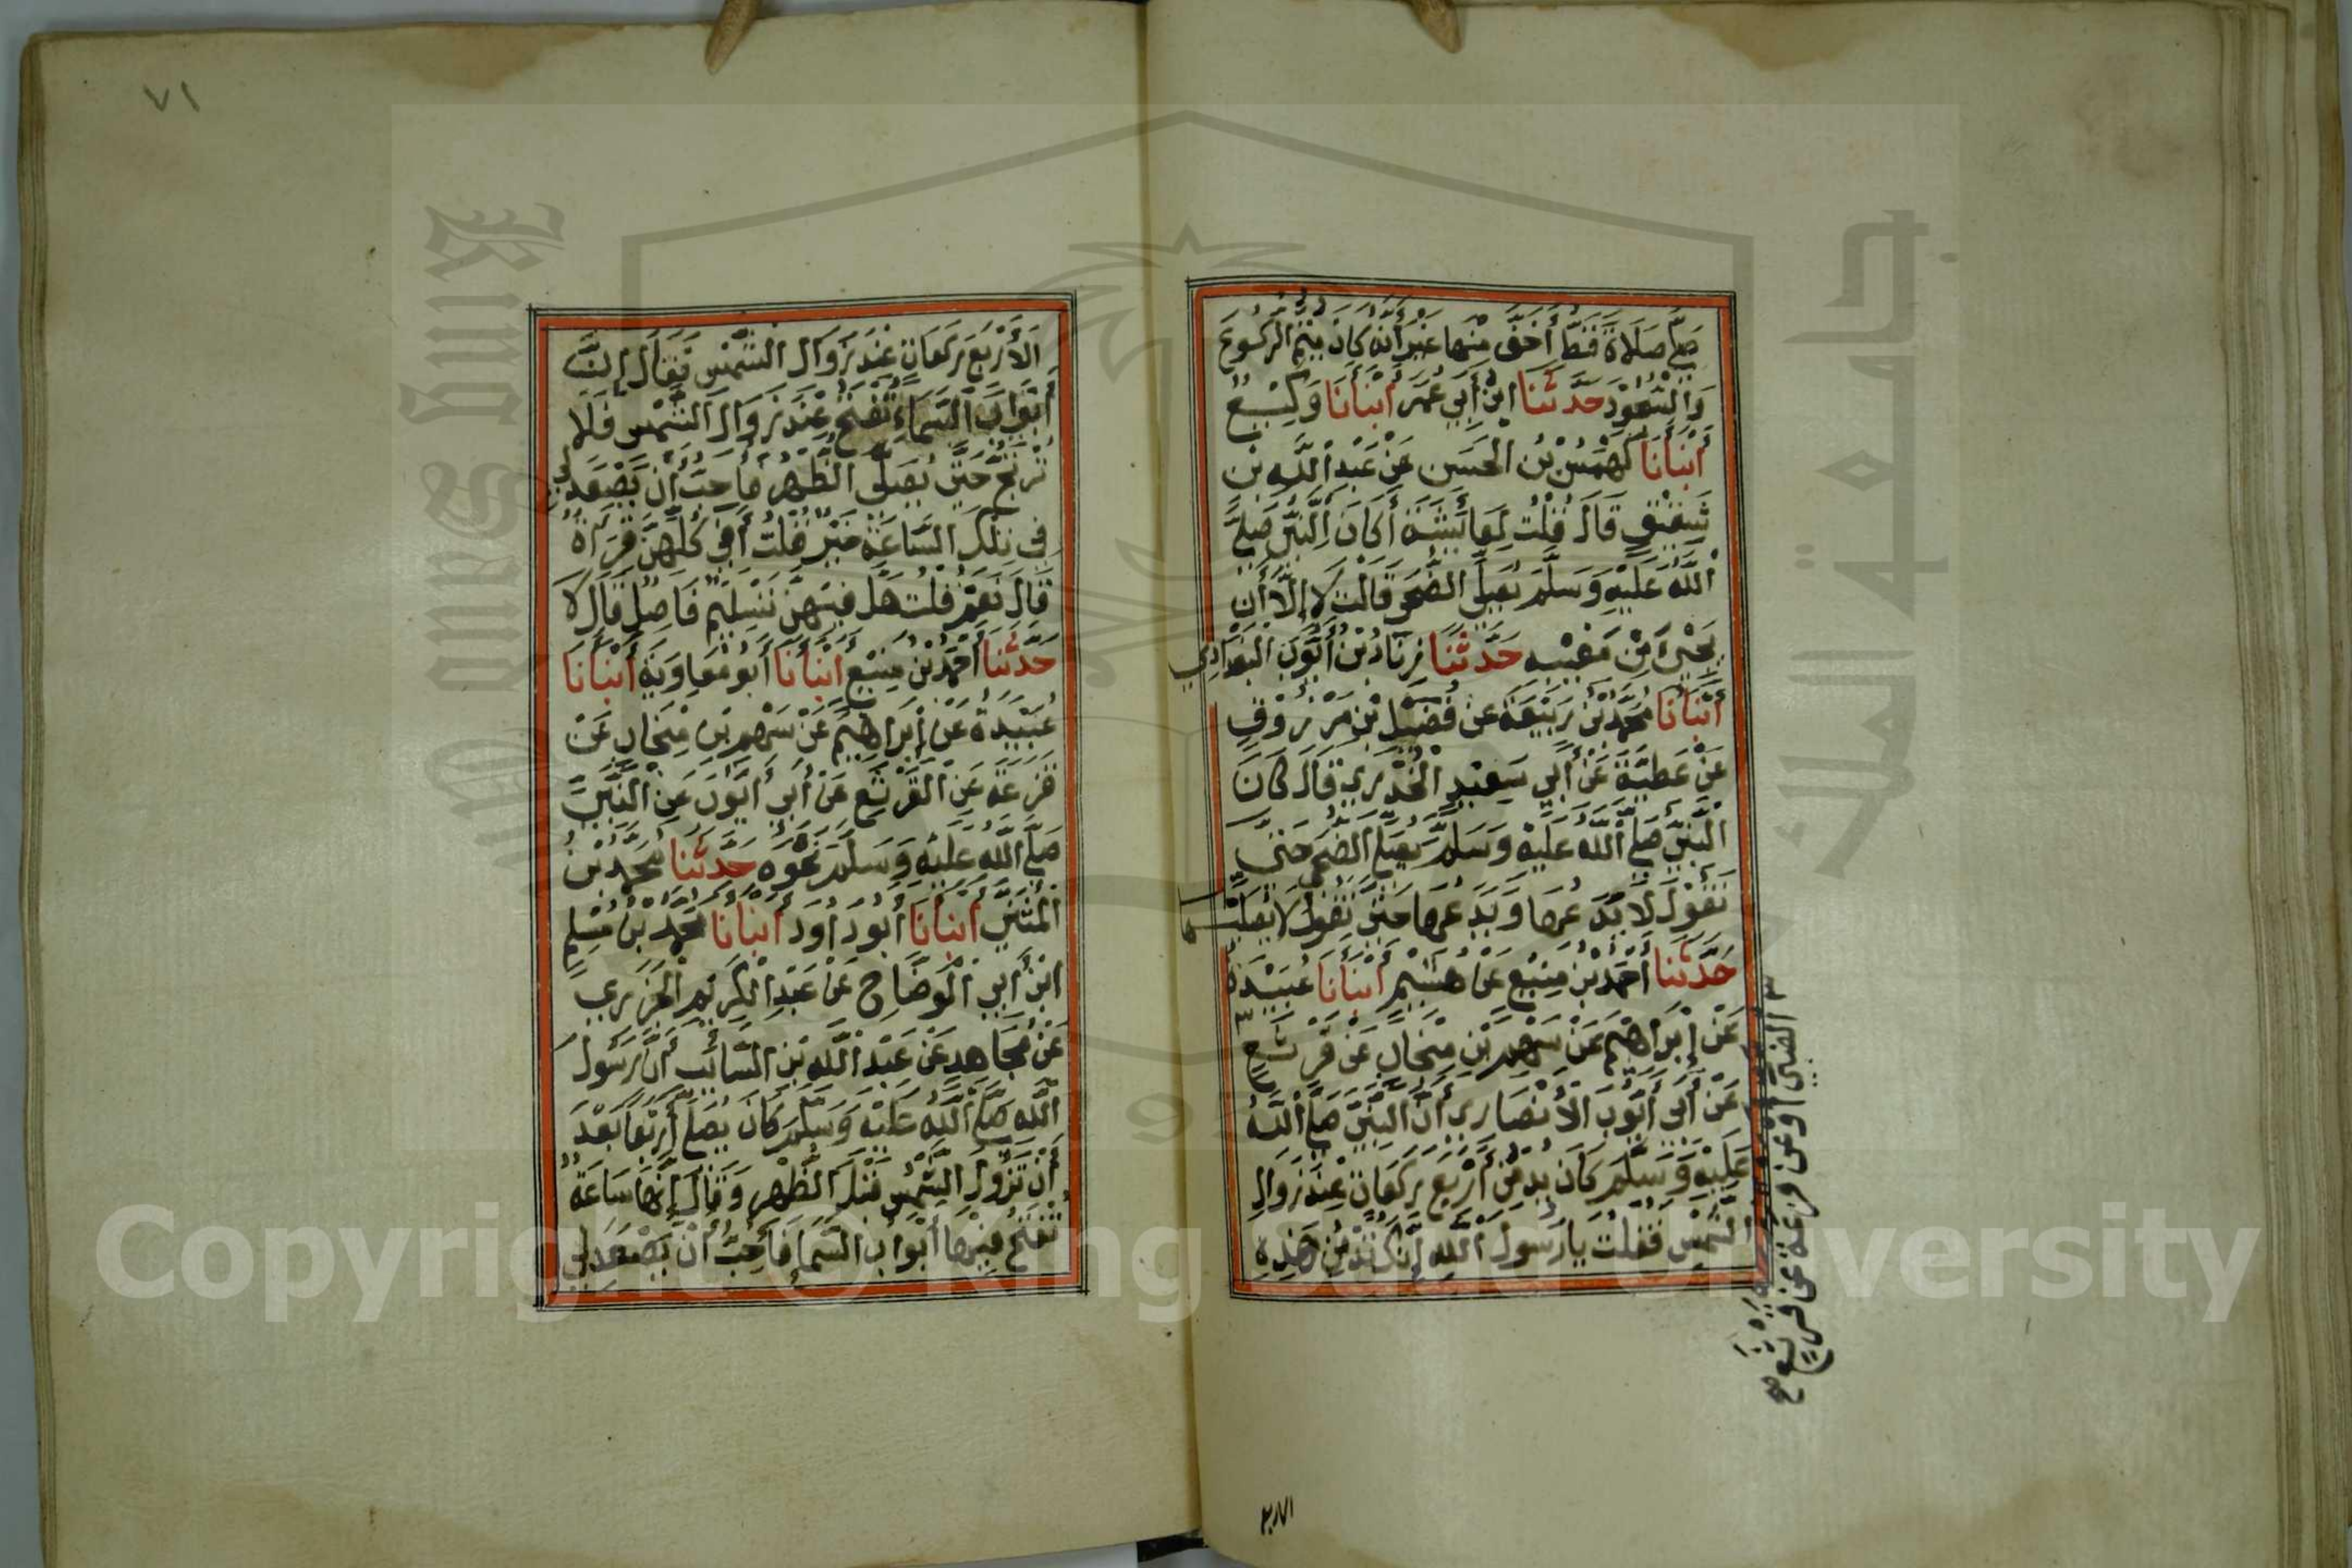 صَلَّى صَلَاةً قَطُّ أَخَفَّ مِنْهَا غَيْرَ أَنَّهُ كَانَ يُتِمُّ الرُّكُوعَ
وَالسُّجُوْدَ حَدَّثَنَا ابْنُ أَبِي عُمَرَ أَنْبَأَنَا وَكِيْعٌ
أَنْبَأَنَا كَهْمَسُ بْنُ الحَسَنِ عَنْ عَبْدِ اللَّهِ بْنِ
شَقِيْقٍ قَالَ قُلْتُ لِعَائِشَةَ أَكَانَ النَّبِيُّ صَلَّى
اللَّهُ عَلَيْهِ وَسَلَّمَ يُصَلِّي الضُّحَى قَالَتْ لَا إِلَّا أَنْ
يَجِيْءَ مِنْ مَغِيْبِهِ حَدَّثَنَا زِيَادُ بْنُ أَيُّوبَ البَغْدَادِي
أَنْبَأَنَا مُحَمَّدُ بْنُ رَبِيْعَةَ عَنْ فُضَيْلِ بْنِ مَرْزُوْقٍ
عَنْ عَطِيَّةَ عَنْ أَبِي سَعِيْدٍ الخُدْرِيِّ قَالَ كَانَ
النَّبِيُّ صَلَّى اللَّهُ عَلَيْهِ وَسَلَّمَ يُصَلِّي الضُّحَى حَتَّى
نَقُوْلَ لَا يَدَعُهَا وَيَدَعُهَا حَتَّى نَقُوْلَ لَا يُصَلِّيْهَا
حَدَّثَنَا أَحْمَدُ بْنُ مَنِيْعٍ عَنْ هُشَيْمٍ أَنْبَأَنَا عُبَيْدَةُ
عَنْ إِبْرَاهِيْمَ عَنْ سَهْمِ بْنِ مِنْجَابٍ عَنْ قَرْثَعٍ
عَنْ أَبِي أَيُّوبَ الأَنْصَارِيِّ أَنَّ النَّبِيَّ صَلَّى اللَّهُ
عَلَيْهِ وَسَلَّمَ كَانَ يُدْمِنُ أَرْبَعَ رَكَعَاتٍ عِنْدَ زَوَالِ
الشَّمْسِ فَقُلْتُ يَا رَسُوْلَ اللَّهِ إِنَّكَ تُدْمِنُ هَذِهِ
الضبي أو عن قزعة عن قرثع
صح
الاربع
٧١
الأَرْبَعَ رَكَعَاتٍ عِنْدَ زَوَالِ الشَّمْسِ فَقَالَ إِنَّ
أَبْوَابَ السَّمَاءِ تُفْتَحُ عِنْدَ زَوَالِ الشَّمْسِ فَلَا
تُرْتَجُ حَتَّى يُصَلَّى الظُّهْرُ فَأُحِبُّ أَنْ يَصْعَدَ لِي
فِي تِلْكَ السَّاعَةِ خَيْرٌ قُلْتُ أَفِي كُلِّهِنَّ قِرَاءَةٌ
قَالَ نَعَمْ قُلْتُ هَلْ فِيْهِنَّ تَسْلِيْمٌ فَاصِلٌ قَالَ لَا
حَدَّثَنَا أَحْمَدُ بْنُ مَنِيْعٍ أَنْبَأَنَا أَبُو مُعَاوِيَةَ أَنْبَأَنَا
عُبَيْدَةُ عَنْ إِبْرَاهِيْمَ عَنْ سَهْمِ بْنِ مِنْجَابٍ عَنْ
قَزَعَةَ عَنِ القَرْثَعِ عَنْ أَبِي أَيُّوبَ عَنِ النَّبِيِّ
صَلَّى اللَّهُ عَلَيْهِ وَسَلَّمَ نَحْوَهُ حَدَّثَنَا مُحَمَّدُ بْنُ
المُثَنَّى أَنْبَأَنَا أَبُو دَاوُدَ أَنْبَأَنَا مُحَمَّدُ بْنُ مُسْلِمِ
ابْنِ أَبِي الوَضَّاحِ عَنْ عَبْدِ الكَرِيْمِ الجَزَرِيِّ
عَنْ مُجَاهِدٍ عَنْ عَبْدِ اللَّهِ بْنِ السَّائِبِ أَنَّ رَسُوْلَ
اللَّهِ صَلَّى اللَّهُ عَلَيْهِ وَسَلَّمَ كَانَ يُصَلِّي أَرْبَعًا بَعْدَ
أَنْ تَزُوْلَ الشَّمْسُ قَبْلَ الظُّهْرِ وَقَالَ إِنَّهَا سَاعَةٌ
تُفْتَحُ فِيْهَا أَبْوَابُ السَّمَاءِ فَأُحِبُّ أَنْ يَصْعَدَ لِي
Copyright © King Saud University
King Saud University
جامعة الملك